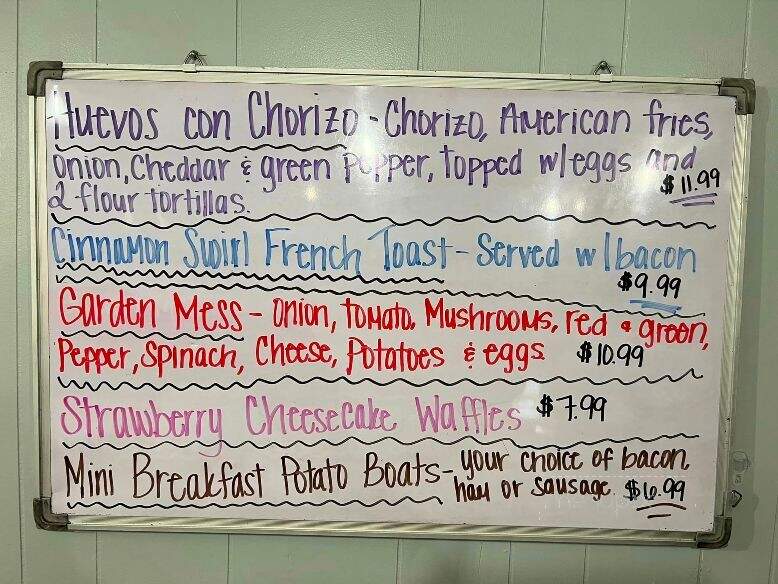 Huevos con Chorizo - Chorizo, American fries,
onion, Cheddar & green pepper, topped w/eggs and
2 flour tortillas. $11.99
Cinnamon Swirl French Toast - Served w/bacon
$9.99
Garden Mess - onion, tomato, Mushrooms, red & green,
Pepper, Spinach, Cheese, Potatoes & eggs $10.99
Strawberry Cheesecake Waffles $7.99
Mini Breakfast Potato Boats - your choice of bacon,
ham or sausage. $6.99